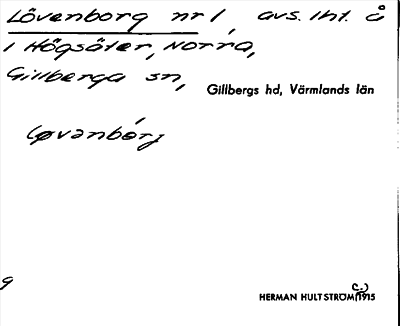 Lövenborg nr 1, avs. int. å
1 Högsäter, Norra,
Gillberga sn,
Gillbergs hd, Värmlands län
Løvanbórj
9
HERMAN HULTSTRÖM (.) 1915